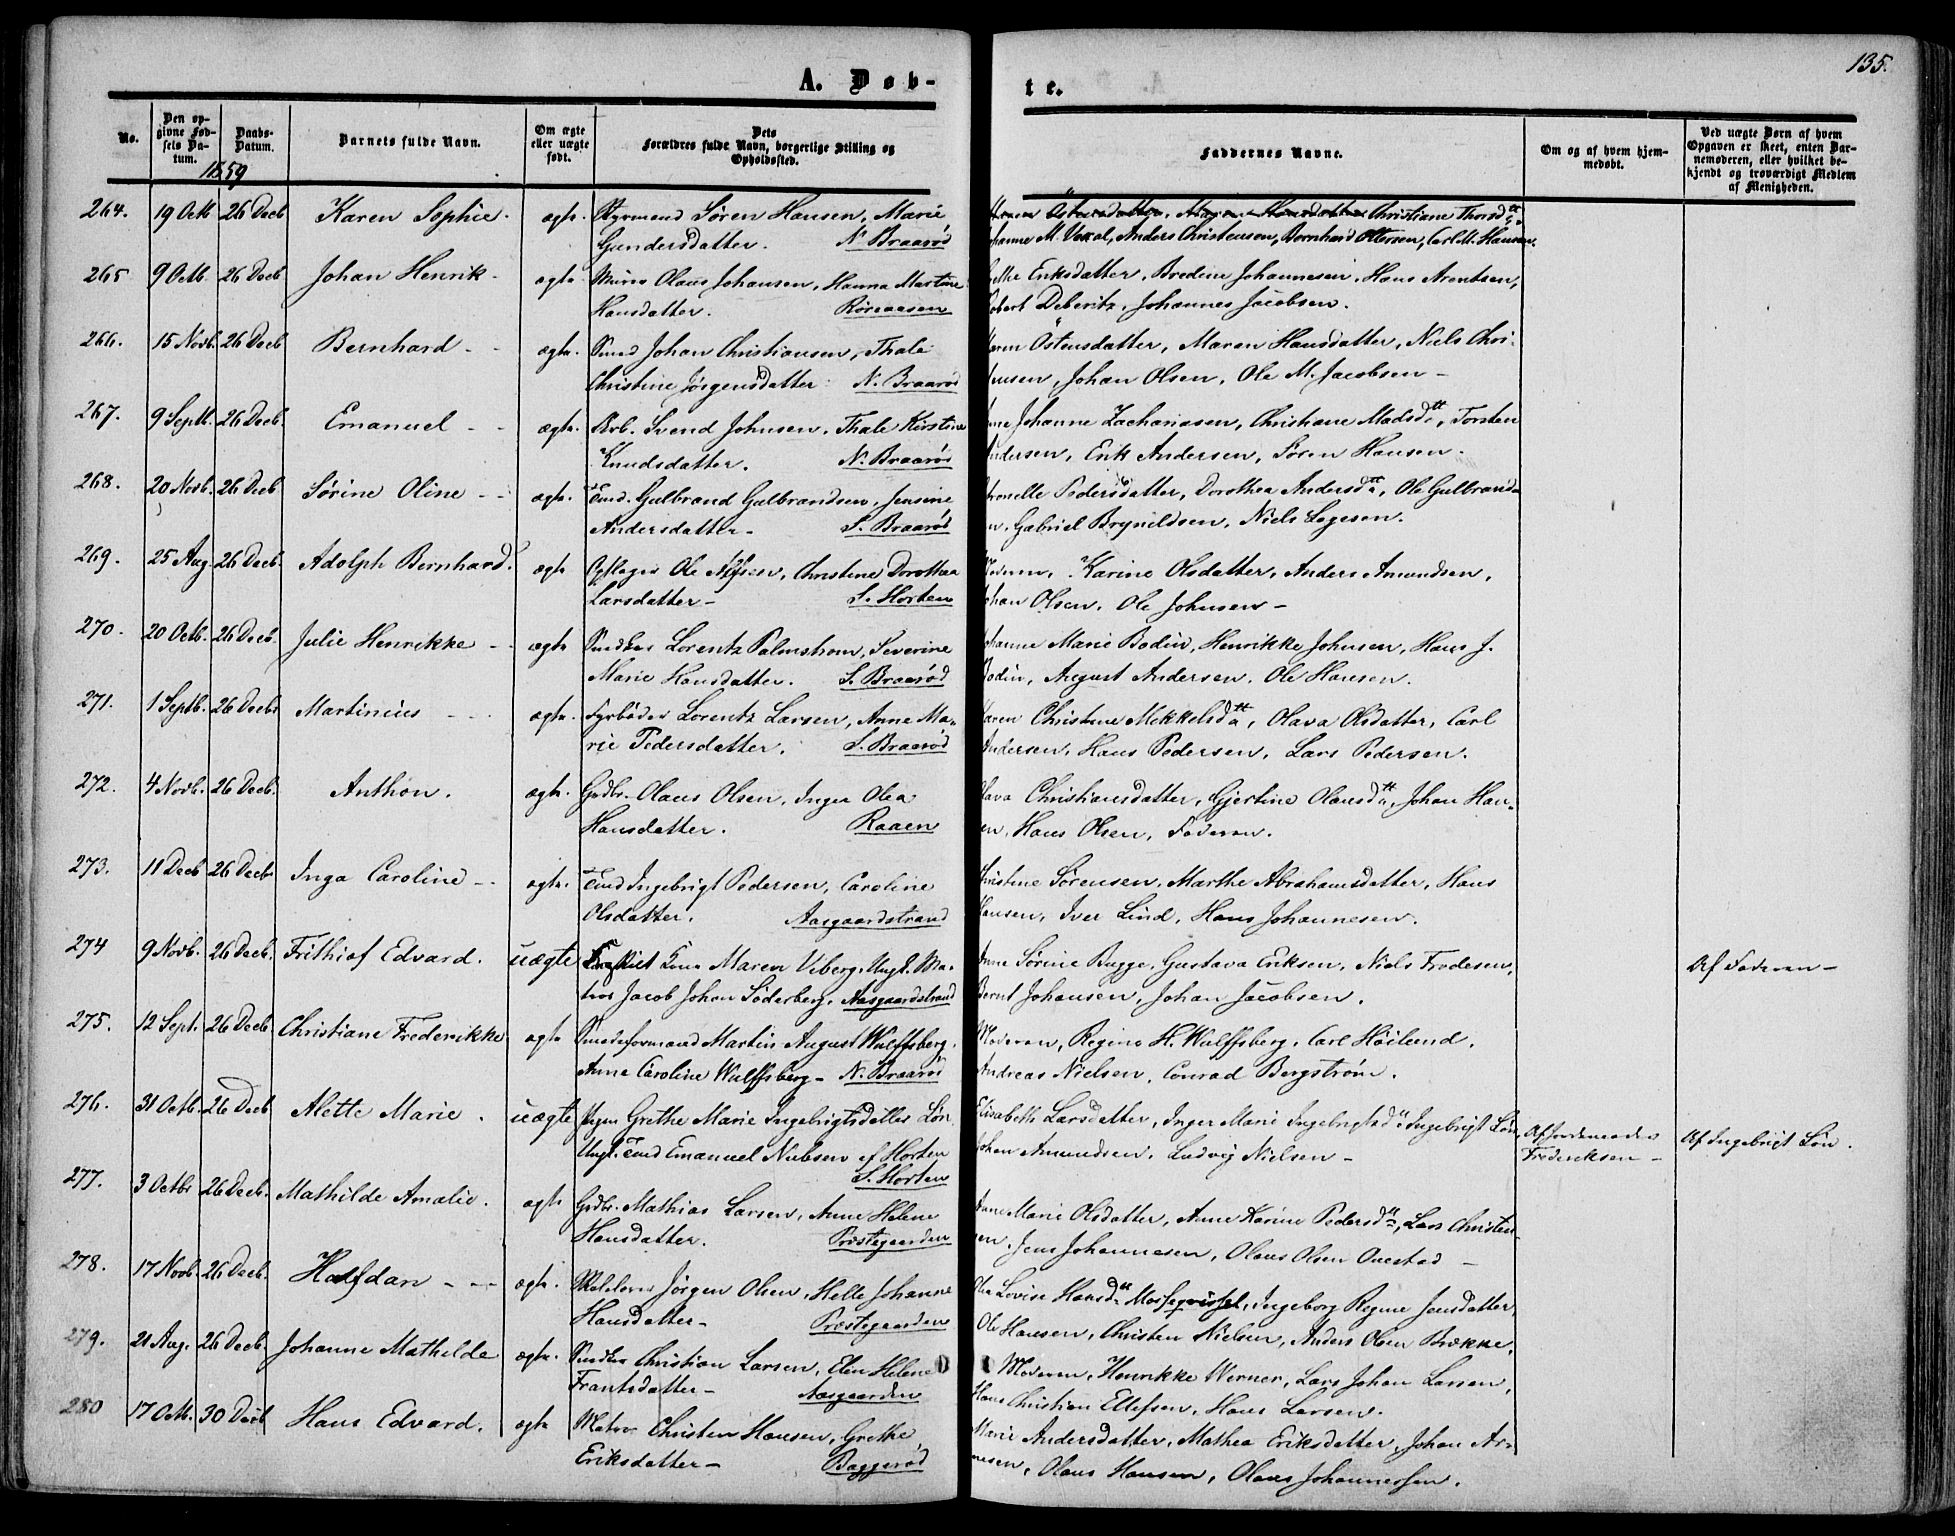 135.
A. Døb-
te.
No.
Den op-
givne Fød-
sels Da-
tum.
Daabs-
Datum.
Barnets fulde Navn.
Om ægte
eller uægte
født.
Dets
Forældres fulde Navn, borgerlige Stilling og
Opholdssted.
Faddernes Navne.
Om og af hvem hjem-
medøbt.
Ved uægte Børn af hvem
Opgaven er skeet, enten Bar-
nemoderen, eller hvilket be-
kjendt og troværdigt Medlem
af Menigheden.
1859
264. 19 Octb 26 Decb Karen Sophie. ægte Styrmand Søren Hansen, Marie Östensdatter, Maren Hansdatter Christiane Thorsdtt,
Gundersdatter. N. Braarød Johanne M. Vexal, Anders Christensen, Bernhard Ottersen, Carl M. Hansen.
265 9 Octb. 26 Decb Johan Henrik - ægte. Murer Olaus Johansen, Hanna Martine Eriksdatter, Bredine Johannesen, Hans Arentsen,
Hansdatter. Røreaasen Robert Deberitz, Johannes Jacobsen.
266. 15 Novb. 26 Decb Bernhard - - ægte. Smed Johan Christiansen, Thale Karen Östensdatter, Maren Hansdatter, Niels Chri-
Christine Jørgensdatter. N. Braarød Johan Olsen, Ole M. Jacobsen -
267. 9 Septb. 26 Decb. Emanuel - - ægte. Arb. Svend Johnsen, Thale Kirstine Johanne Zachariasen, Christiane Madsdtt, Torsten
Knudsdatter. N. Braarød Andersen, Erik Andersen, Søren Hansen.
268. 20 Novb. 26 Decb Sørine Oline - - ægte. Tmd. Gulbrand Gulbrandsen, Jensine Petronelle Pedersdatter, Dorothea Andersdtt, Ole Gulbrand-
Andersdatter - S. Braarød Gabriel Brynildsen, Niels Legesen.
269. 25 Aug. 26 Decb. Adolph Bernhard. ægte Oplager Ole Christine Dorothea Moderen, Karine Olsdatter, Anders Amundsen,
Larsdatter - S. Horten Johan Olsen, Ole Johnsen -
270. 20 Octb. 26 Decb. Julie Henrikke - - ægte Lorentz Palmstrøm, Severine Johanne Marie Bodin, Henrikke Johnsen, Hans J.
Marie Hansdatter. S. Braarød Bodin, August Andersen, Ole Hansen.
271. 1 Septb. 26 Decbr Martinius - - - ægte. Fyrbøder Lorentz Larsen, Anne Ma- Karen Christine Mekkelsdtt, Olava Olsdatter, Carl
rie Pedersdatter. S. Braarød Andersen, Hans Pedersen, Lars Pedersen.
272. 4 Novb. 26 Decb. Anthon. ægte. Grdbr. Olaus Olsen, Inger Olea Olava Christiansdatter, Gjertine Olausdtt, Johan Han-
Hansdatter. Raaen sen, Hans Olsen, Faderen.
273. 11 Decb 26 Decbr Inga Caroline - - ægte. Tmd Ingebrigt Pedersen, Caroline Christine Sørensen, Marthe Abrahamsdatter, Hans
Olsdatter. Aasgaardstrand Hansen, Iver Lind, Hans Johannesen.
274 9 Novb. 26 Decb. Frithiof Edvard. uægte Kone Maren Viberg, Ungk. Ma- Anne Sørine Bugge, Gustava Eriksen, Niels Frodesen, Af Faderen -
tros Jacob Johan Söderberg, Aasgaardstrand Bernt Johansen, Johan Jacobsen.
275. 12 Sept. 26 Decb. Christiane Frederikke ægte Smedeformand Martin August Wulffsberg, Moderen, Regine H. Wulffsberg, Carl Höilund,
Anne Caroline Wulffsberg - N. Braarød Andreas Nielsen, Conrad Bergstrøm.
276. 31 Octb. 26 Decb Alette Marie. uægte Pigen Grethe Marie Ingebrigtsdatter Løn, Elisabeth Larsdatter, Inger Marie Ingebrigtsd Ingebrigt Løn, Af Jordemoder Af Ingebrigt Løn.
Ungk. Tmd Emanuel Nielsen af Horten Johan Amundsen, Ludvig Nielsen - Frederiksen -
S. Horten
277. 3 Octbr 26 Decb. Mathilde Amalie. ægte Grdbr. Mathias Larsen, Anne Helene Anne Marie Olsdatter, Anne Karine Pedersd, Lars Christen-
Hansdatter. Præstegaarden sen, Jens Johannesen, Olaus Olsen Onestad -
278. 17 Novb. 26 Decb. Halfdan - - - ægte. Jørgen Olsen, Helle Johanne Lovise Hansdtt Ingeborg Regine Jensdatter,
Hansdatter - Præstegaarden Ole Hansen, Christen Nielsen, Anders Olsen Brække.
279. 21 Aug. 26 Decb. Johanne Mathilde ægte. Christian Larsen, Elen Helene Moderen, Henrikke Werner, Lars Johan Larsen,
Frantsdatter - Aasgaarden Hans Christian Ellefsen, Hans Larsen.
280 17 Octb. 30 Decb Hans Edvard. ægte Matros Christen Hansen, Grethe Marie Andersdatter, Mathea Eriksdatter, Johan Ar-
Eriksdatter - Baggerød Olaus Hansen, Olaus Johannessen.